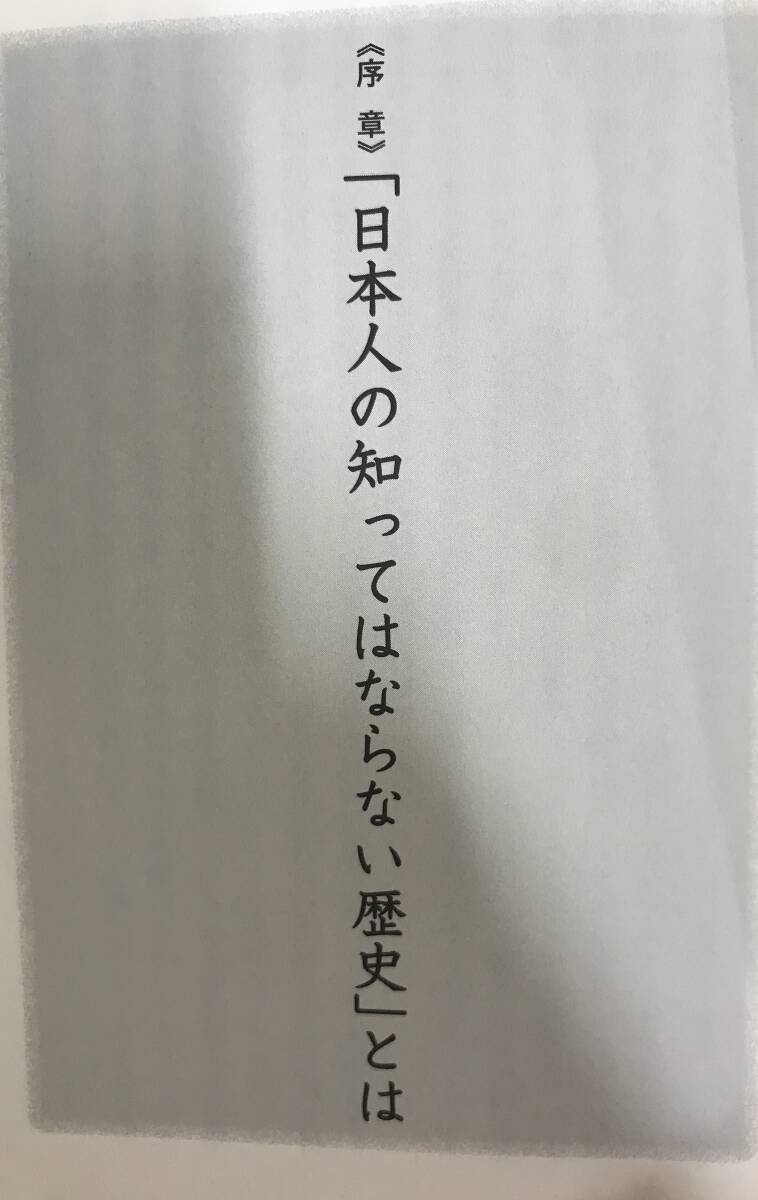 《序章》「日本人の知ってはならない歴史」とは